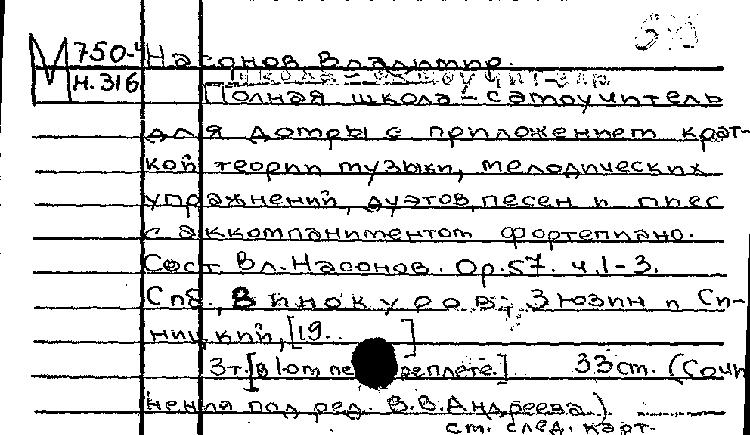 М 750-4 Насонов Владимир.
Н.316 Полная школа-самоучитель
для домры с приложением крат-
кой теории музыки, мелодических
упражнений, дуэтов, песен и пиес
с аккомпаниментом фортепиано.
Сост. Вл. Насонов. Ор.57. ч.1-3.
Спб., Винокуров, Зюзин и Си-
ницкий, [19.. ]
3 т. [в 1-ом переплете.] 33 ст. (Сочи
нения под ред. В.В.Андреева).
см. след. карт.